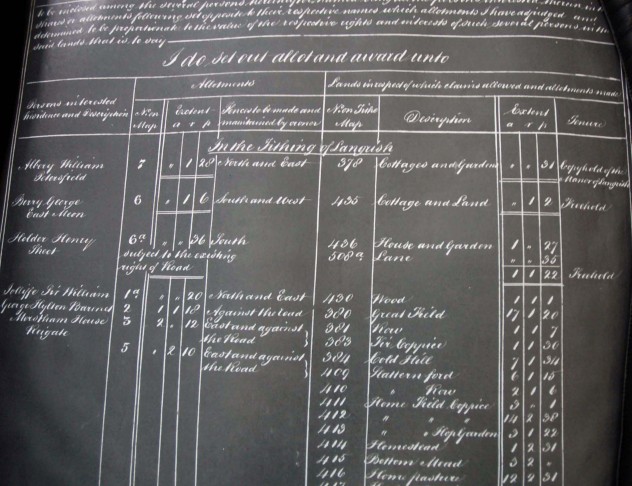 to be inclosed among the several persons
shares or allotments following set opposite to their respective names which allotments I have adjudged and
determined to be proportionate to the value of the respective rights and interests of such several persons in the
said lands that is to say
I do set out allot and award unto
Allotments Lands in respect of which claims allowed and allotments made
Persons interested Residence and Description No on Map Extent a r p Fences to be made and maintained by owner No on Tithe Map Description Extent a r p Tenure
In the Tithing of Langrish
Albery William 7 " 1 28 North and East 378 Cottages and Gardens " " 31 Copyhold of the
Petersfield Manor of Langrish
Berry George 6 " 1 6 South and West 435 Cottage and Land " 1 2 Freehold
East Meon
Holder Henry 6a " " 36 South 436 House and Garden 1 " 27
Steet subject to the existing 508a Lane " " 35
right of Road 1 1 22 Freehold
Jolliffe Sir William 1a " " 20 North and East 430 Wood 1 1 1
George Hylton Baronet 2 1 1 18 Against the road 380 Great Field 17 1 20
Merstham House 3 2 " 12 East and against 381 Row 1 1 7
Reigate the Road 383 Fir Coppice 1 1 30
5 " 2 10 East and against 384 Cold Hill 7 " 34
the Road 409 Slattern ford 6 1 15
410 " Row 2 1 6
411 Home Field Coppice 3 " 1
412 " " " 14 2 38
413 " " Hop Garden 3 1 22
414 Homestead 1 2 31
415 Bottom Mead 3 2 "
416 Home pasture 12 2 31
417